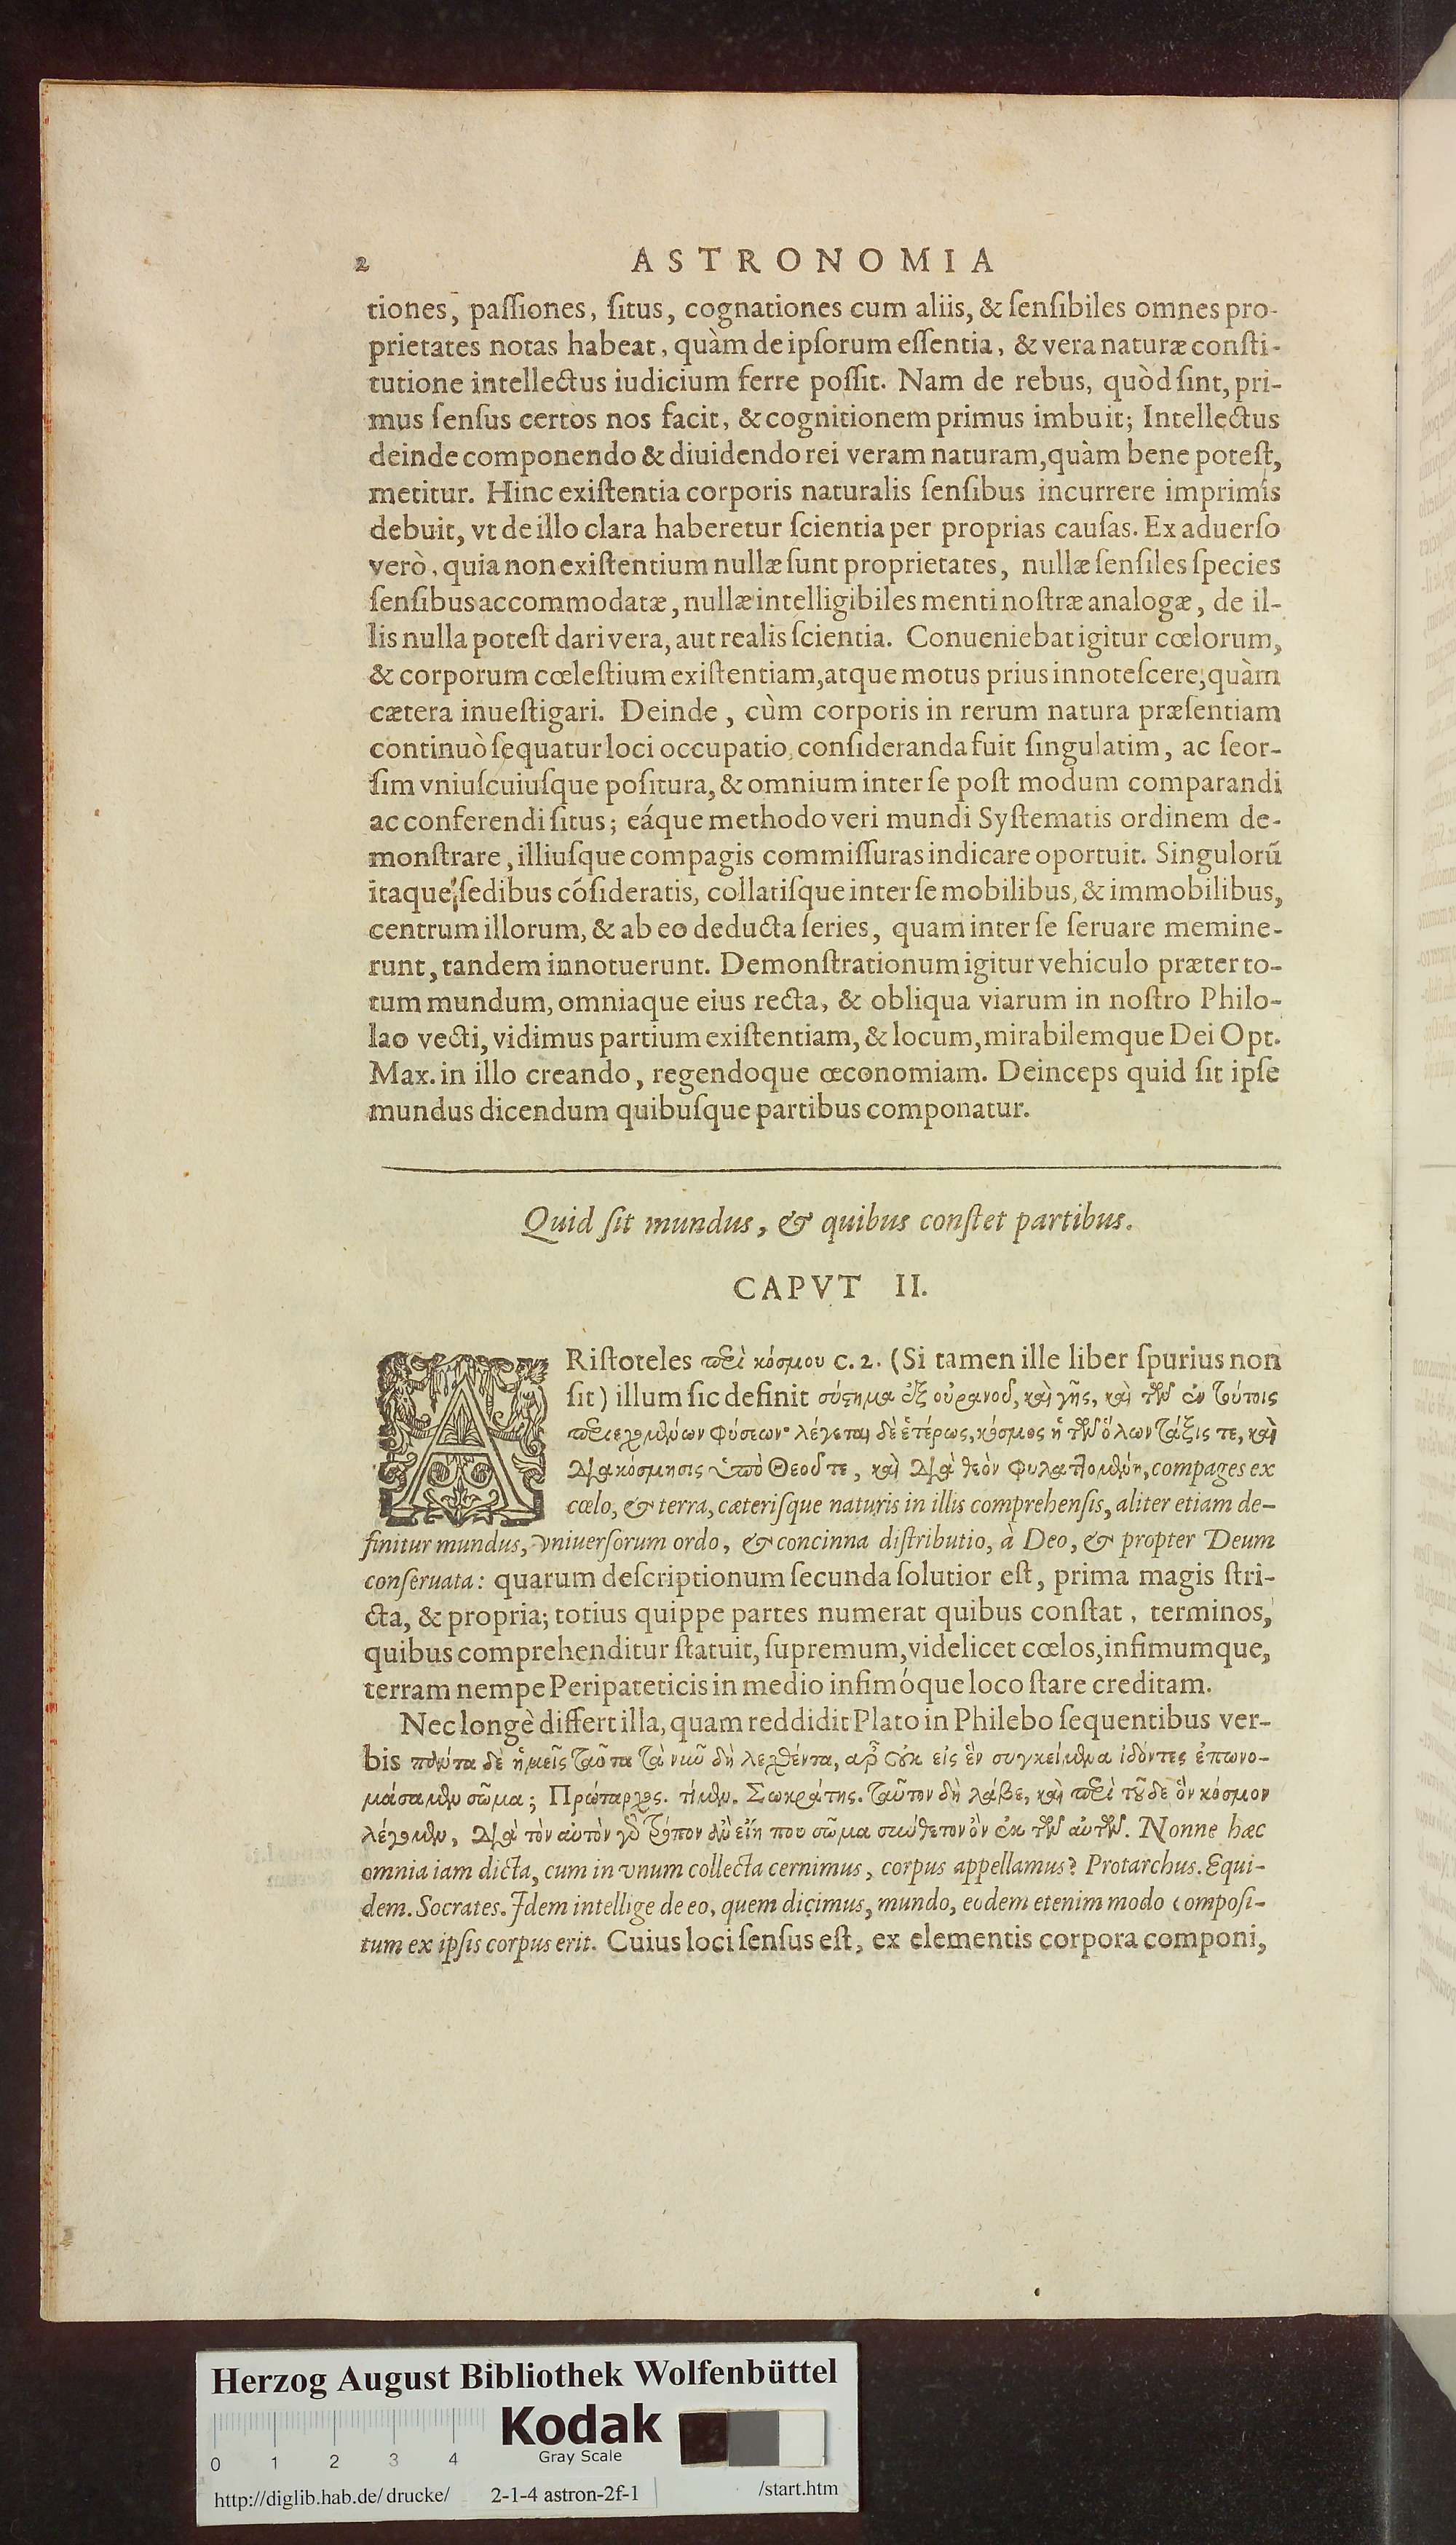 2 ASTRONOMIA
tiones, paſſiones, ſitus, cognationes cum aliis, & ſenſibiles omnes pro-
prietates notas habeat, quàm de ipſorum eſſentia, & vera naturæ conſti-
tutione intellectus iudicium ferre poſſit. Nam de rebus, quòd ſint, pri-
mus ſenſus certos nos facit, & cognitionem primus imbuit; Intellectus
deinde componendo & diuidendo rei veram naturam, quàm bene poteſt,
metitur. Hinc exiſtentia corporis naturalis ſenſibus incurrere imprimís
debuit, vt de illo clara haberetur ſcientia per proprias cauſas. Ex aduerſo
verò, quia non exiſtentium nullæ ſunt proprietates, nullæ ſenſiles ſpecies
ſenſibus accommodatæ, nullæ intelligibiles menti noſtræ analogæ, de il-
lis nulla poteſt dari vera, aut realis ſcientia. Conueniebat igitur cœlorum,
& corporum cœleſtium exiſtentiam, atque motus prius innoteſcere, quàm
cætera inueſtigari. Deinde, cùm corporis in rerum natura præſentiam
continuò ſequatur loci occupatio, conſideranda fuit ſingulatim, ac ſeor-
ſim vniuſcuiuſque poſitura, & omnium inter ſe poſt modum comparandi
ac conferendi ſitus; eáque methodo veri mundi Syſtematis ordinem de-
monſtrare, illiuſque compagis commiſſuras indicare oportuit. Singulorū
itaque ſedibus cóſideratis, collatiſque inter ſe mobilibus, & immobilibus,
centrum illorum, & ab eo deducta ſeries, quam inter ſe ſeruare memine-
runt, tandem innotuerunt. Demonſtrationum igitur vehiculo præter to-
tum mundum, omniaque eius recta, & obliqua viarum in noſtro Philo-
lao vecti, vidimus partium exiſtentiam, & locum, mirabilemque Dei Opt.
Max. in illo creando, regendoque œconomiam. Deinceps quid ſit ipſe
mundus dicendum quibuſque partibus componatur.
Quid ſit mundus, & quibus conſtet partibus.
CAPVT II.
ARiſtoteles περὶ κόσμου c. 2. (Si tamen ille liber ſpurius non
ſit) illum ſic definit σύστημα ἐξ οὐρανοῦ, καὶ γῆς, καὶ τῶν ἐν τούτοις
περιεχομένων φύσεων· λέγεται δὲ ἑτέρως, κόσμος ἡ τῶν ὅλων τάξις τε, καὶ
διακόσμησις ὑπὸ Θεοῦ τε, καὶ διὰ θεὸν φυλαττομένη, compages ex
cœlo, & terra, cæteriſque naturis in illis comprehenſis, aliter etiam de-
finitur mundus, vniuerſorum ordo, & concinna diſtributio, à Deo, & propter Deum
conſeruata: quarum deſcriptionum ſecunda ſolutior eſt, prima magis ſtri-
cta, & propria; totius quippe partes numerat quibus conſtat, terminos,
quibus comprehenditur ſtatuit, ſupremum, videlicet cœlos, infimumque,
terram nempe Peripateticis in medio infimóque loco ſtare creditam.
Nec longè differt illa, quam reddidit Plato in Philebo ſequentibus ver-
bis πάντα δὲ ἡμεῖς ταῦτα τὰ νῦν δὴ λεχθέντα, ἆρ' οὐκ εἰς ἓν συγκείμενα ἰδόντες ἐπωνο-
μάσαμεν σῶμα; Πρώταρχος. τί μήν. Σωκράτης. ταὐτὸν δὴ λάβε, καὶ περὶ τοῦδε ὃν κόσμον
λέγομεν, διὰ τὸν αὐτὸν γὰρ τρόπον ἂν εἴη που σῶμα σύνθετον ὂν ἐκ τῶν αὐτῶν. Nonne hæc
omnia iam dicta, cum in vnum collecta cernimus, corpus appellamus? Protarchus. Equi-
dem. Socrates. Idem intellige de eo, quem dicimus, mundo, eodem etenim modo compoſi-
tum ex ipſis corpus erit. Cuius loci ſenſus eſt, ex elementis corpora componi,
Herzog August Bibliothek Wolfenbüttel
Kodak
Gray Scale
0 1 2 3 4
http://diglib.hab.de/drucke/ 2-1-4 astron-2f-1 /start.htm